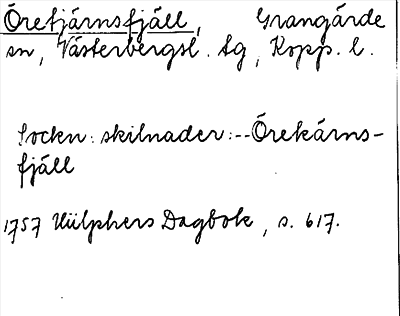 Öretjärnsfjäll, Grangärde
sn, Västerbergsl. tg, Kopp. l.
Sockn: skilnader:--Örekärns-
fjäll
1757 Hülphers Dagbok, s. 617.